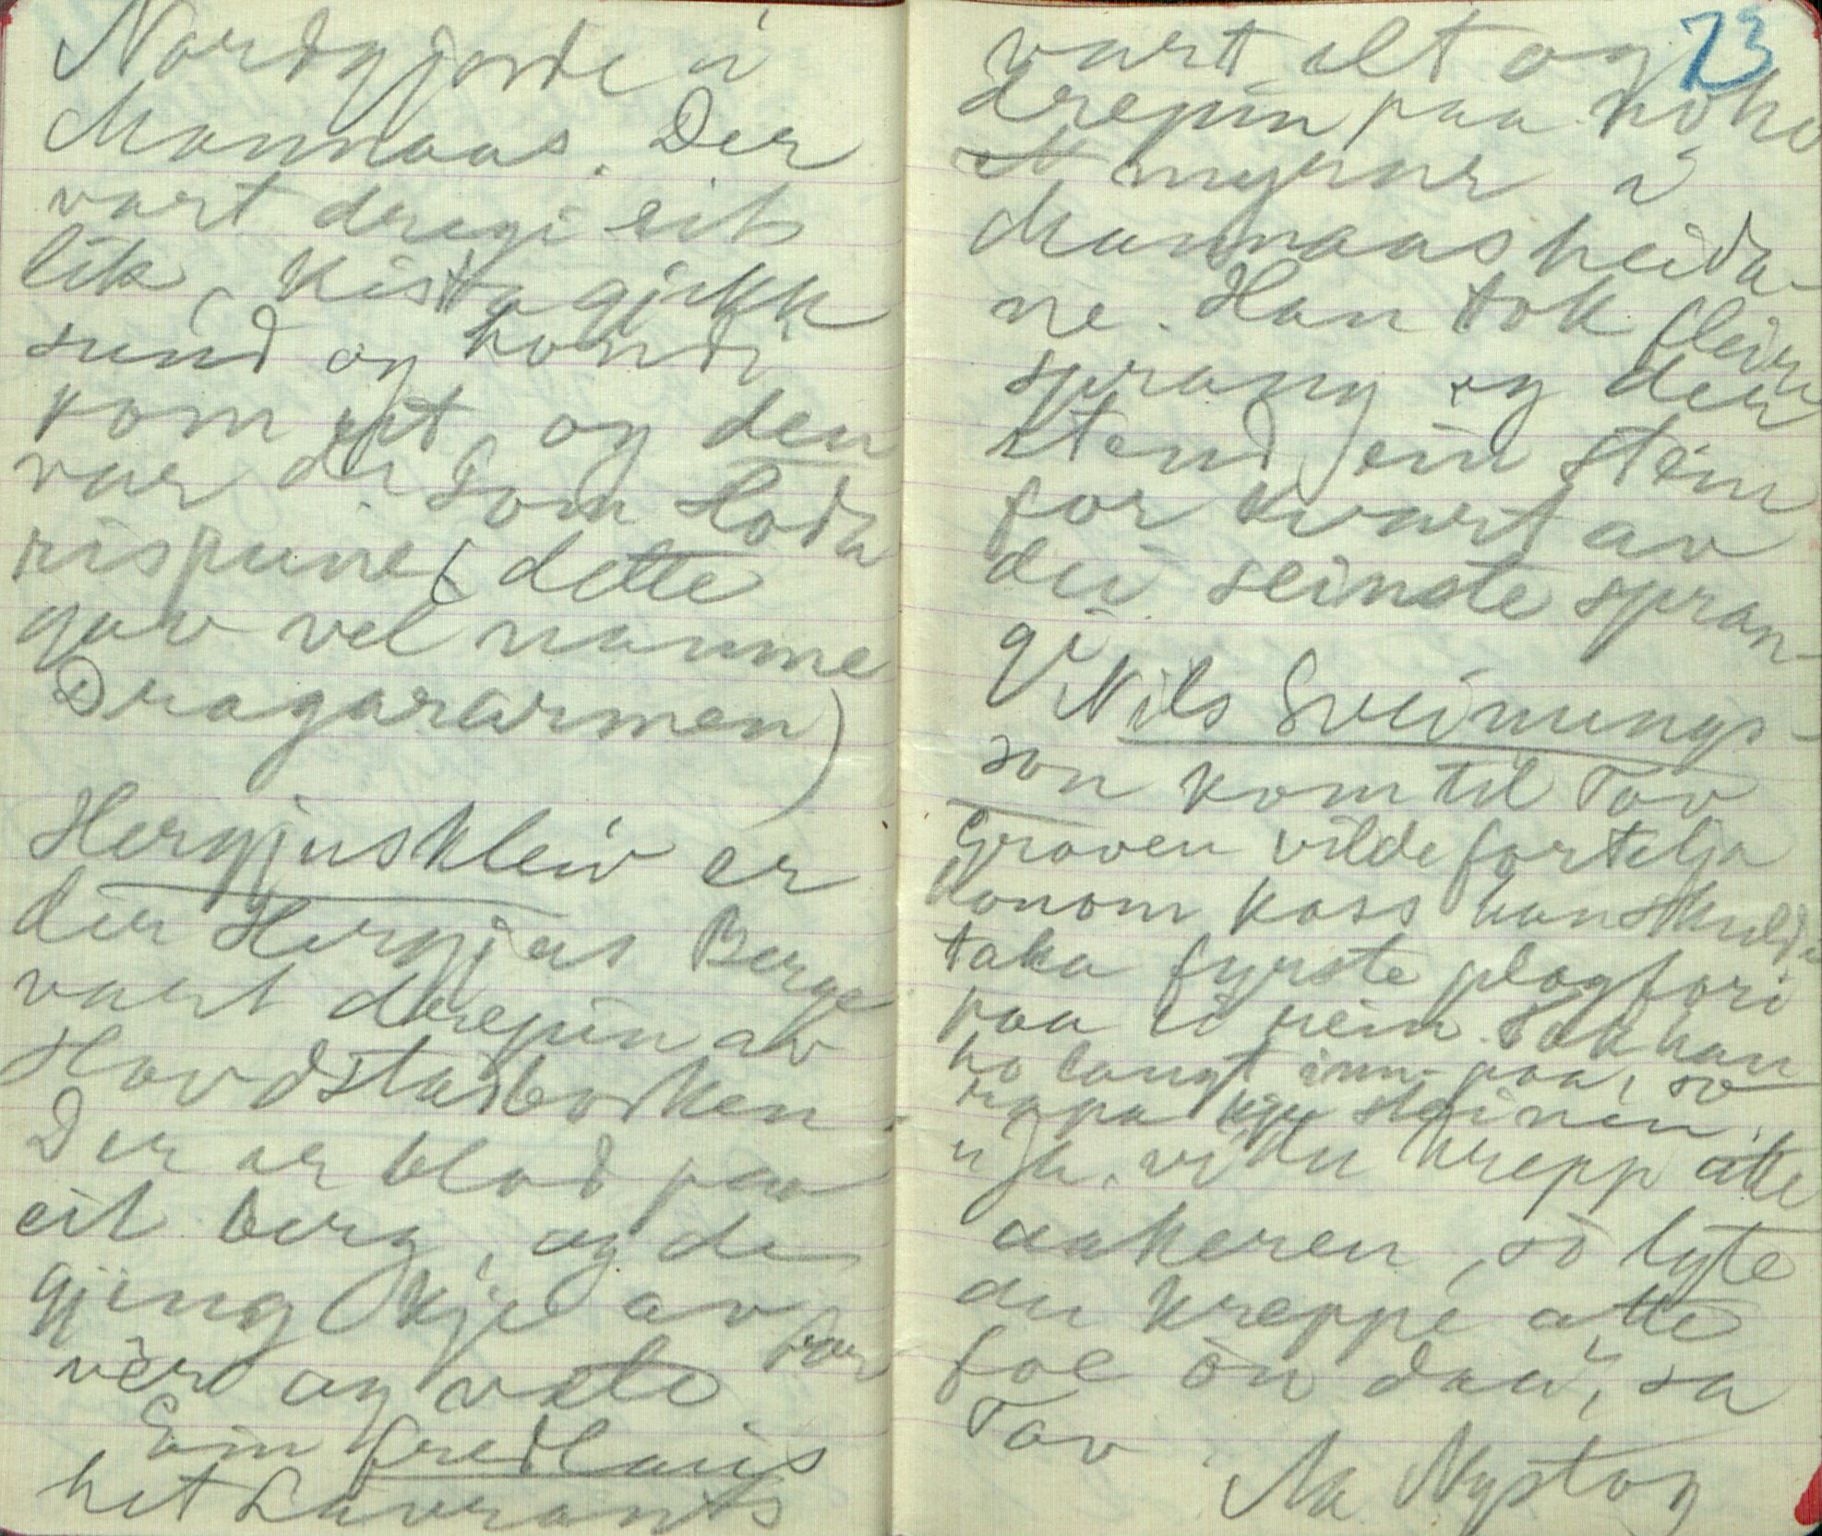 Nordgjorde i
Mannaas. Der
vart dregi eit
lik. Kista gjekk
sund og hondi
kom ut, og den
var de som Loda
rispune (dette
gav vel namne
Dragararmen)
Hergjuskleiv er
der Hergjus Berge
vart drepin av
Hovdstadborken.
Der er blod paa
eit berg, og de
gjeng kje av
for
vèr og vete
Ein fredlaus
het Lavrants
73
vart elt og
drepin paa noko
myrar i
Mannaasheida-
ne. Han tok fleire
sprang og der
stend ein stein
for kvart av
dei seinste spran-
gi
Nils Sveinungs-
son kom til Tov
Groven vilde fortelja
honom koss han skulde
taka fyrste plogfori
paa ei rein. Tok han
ho langt inn-paa, so
steinen.
vil du krepp atte
aakeren, so lyte
du kreppe atte
foe òn daa", sa
Tov
Aa. Nystog